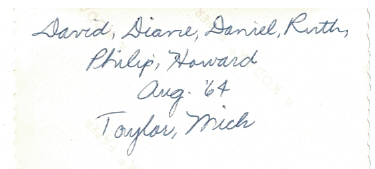 David, Diane, Daniel, Ruth,
Philip, Howard
Aug. '64
Taylor, Mich